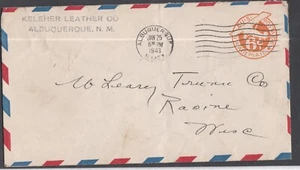 KELEHER LEATHER CO
ALBUQUERQUE, N. M.
ALBUQUERQUE
JAN 25
6 PM
1943
N. MEX.
6¢
McLeary Co
Racine
Wisc